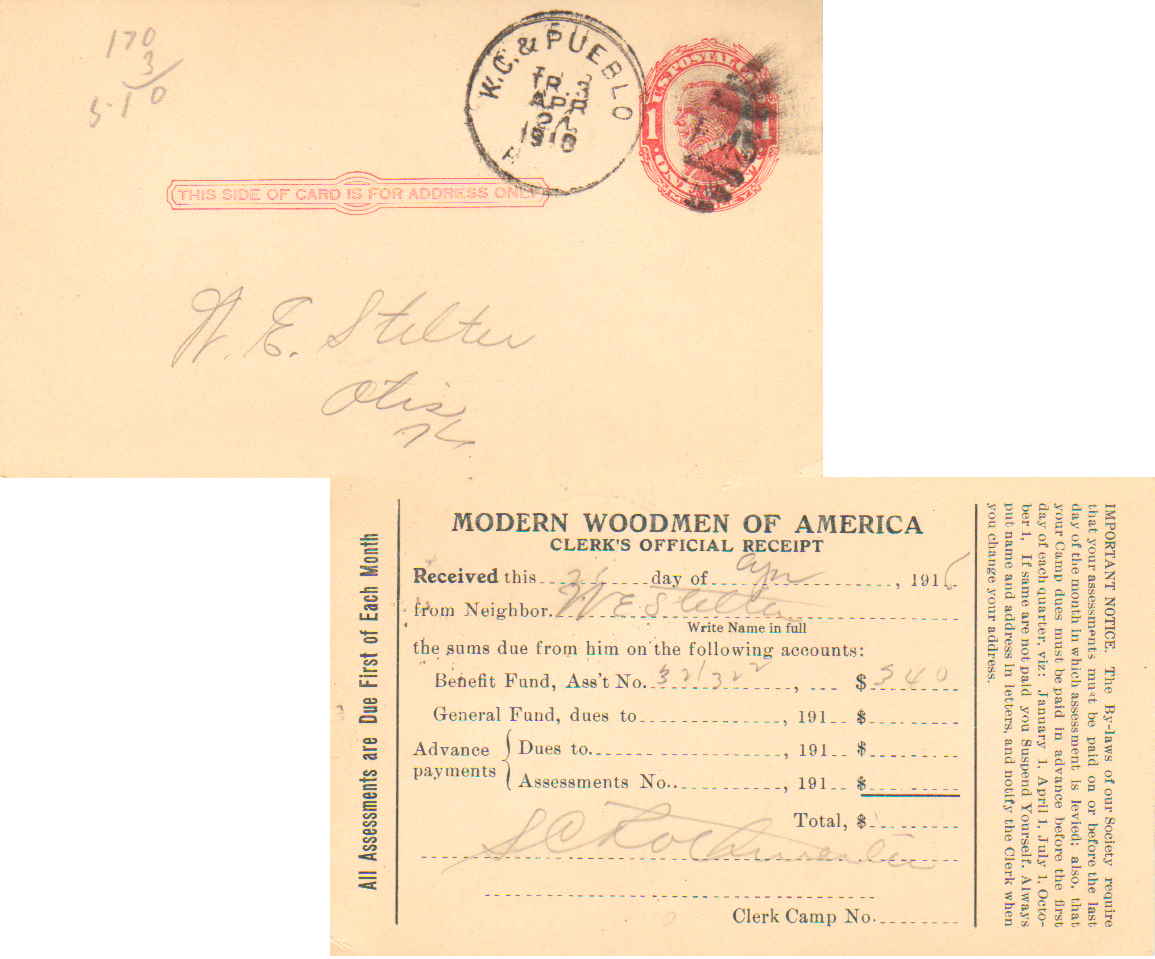 170
3
5.10
K.C. & PUEBLO
TR. 3
APR
1916
R
U.S. POSTAL
1 1
THIS SIDE OF CARD IS FOR ADDRESS ONLY
W. E. Stelter
Otis
MODERN WOODMEN OF AMERICA
CLERK'S OFFICIAL RECEIPT
Received this 26 day of Apr, 1916
from Neighbor. W E Stelter
Write Name in full
the sums due from him on the following accounts:
Benefit Fund, Ass't No. 321322, $ 340
General Fund, dues to, 191 $
Advance payments { Dues to, 191 $
Assessments No., 191 $
Total, $
Clerk Camp No.
All Assessments are Due First of Each Month
IMPORTANT NOTICE. The By-laws of our Society require
that your assessments must be paid on or before the last
day of the month in which assessment is levied; also, that
your Camp dues must be paid in advance before the first
day of each quarter, viz: January 1, April 1, July 1, Octo-
ber 1. If same are not paid you Suspend Yourself. Always
put name and address in letters, and notify the Clerk when
you change your address.